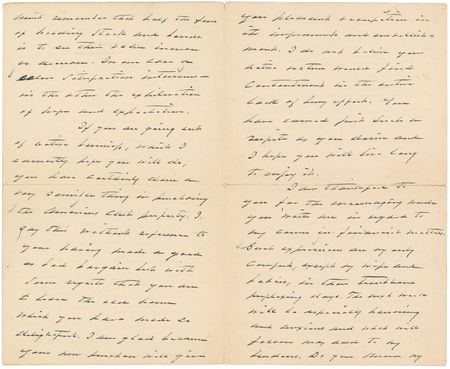 must remember that half the fun
of breeding stock and lands
is to see their value increase
or decrease. In one case a
calm satisfaction intervenes
in the other the exhilaration
of hope and expectation.
If you are going out
of active business, which I
earnestly hope you will do,
you have certainly done a
very sensible thing in purchasing
the American Club property. I
say this without reference to
your having made a good
or bad bargain but with
some regrets that you are
to leave the old home
which you have made so
delightful. I am glad because
your new purchase will give
you pleasant occupation in
its improvements and embellish-
ment. I do not believe your
active nature would find
contentment in the entire
lack of busy effort. You
have earned just such a
respite as you desire and
I hope you will live long
to enjoy it.
I am thankful to
you for the encouraging words
you write me in regard to
my course in financial matters.
Such expressions are my only
comfort, except my wife and
babies, in these troublous
perplexing days. The next week
will be especially harassing
and anxious and what will
follow may add to my
burdens. Do you know my